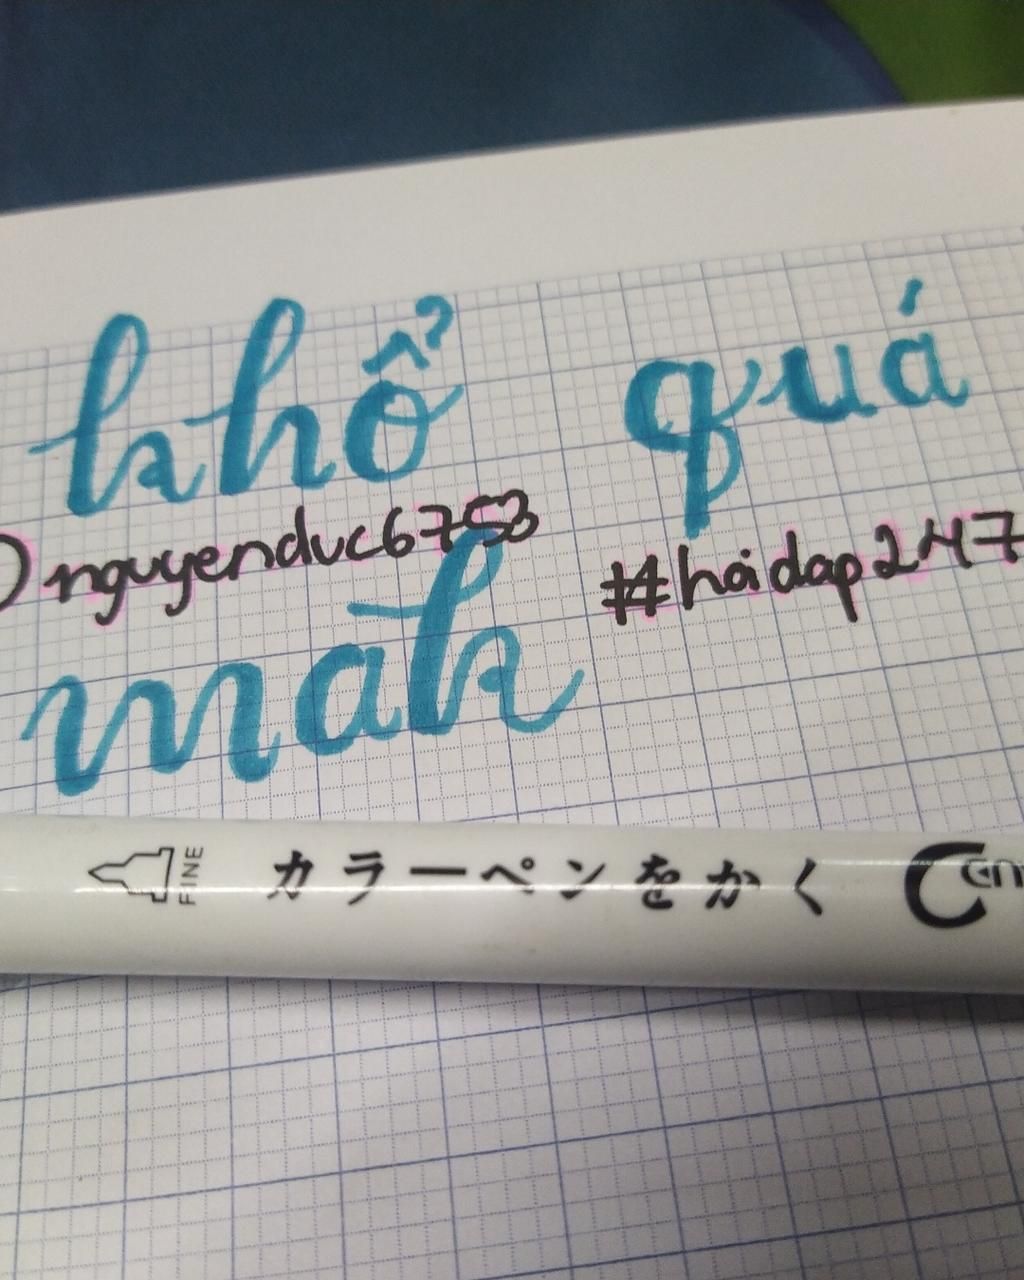 khổ quá
nguyenduc6753 #hoidap247
mak
FINE カラーペンをかく